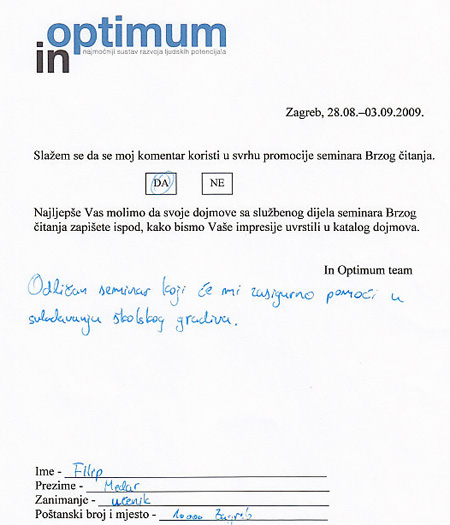 in optimum
najmoćniji sustav razvoja ljudskih potencijala
Zagreb, 28.08.–03.09.2009.
Slažem se da se moj komentar koristi u svrhu promocije seminara Brzog čitanja.
DA NE
Najljepše Vas molimo da svoje dojmove sa službenog dijela seminara Brzog
čitanja zapišete ispod, kako bismo Vaše impresije uvrstili u katalog dojmova.
In Optimum team
Odličan seminar koji će mi zasigurno pomoći u
svladavanju školskog gradiva.
Ime - FIlip
Prezime - Medar
Zanimanje - učenik
Poštanski broj i mjesto - 10000 Zagreb